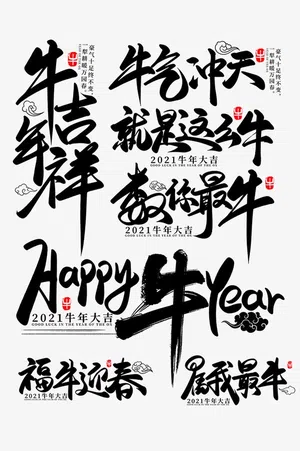 牛年
吉祥
豪气十足终不变，
一犁耕暖万园春。
牛
牛气冲天
豪气十足终不变，
一犁耕暖万园春。
牛
就是这么牛
2021牛年大吉
GOOD LUCK IN THE YEAR OF THE OX
牛
数你最牛
牛
Happy 牛 Year
2021牛年大吉
GOOD LUCK IN THE YEAR OF THE OX
牛
福牛迎春
2021牛年大吉
牛
属我最牛
2021牛年大吉
牛